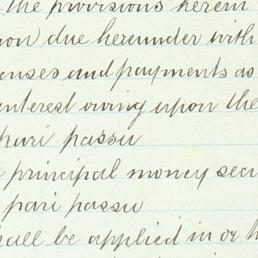 the provisions herein
due hereunder with
and payments as
interest owing upon the
pari passu
principal money
pari passu
be applied in or